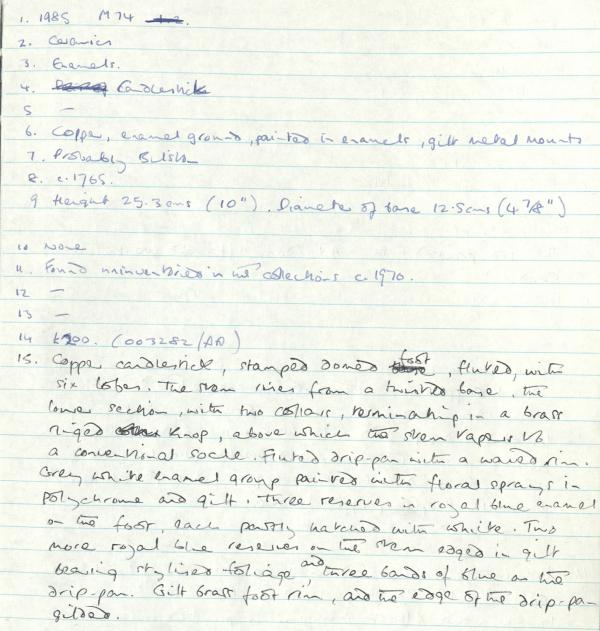 1. 1985 M74
2. Ceramics
3. Enamels.
4. Candlestick
5 —
6. Copper, enamel ground, painted in enamels, gilt metal mounts
7. Probably Bilston
8. c.1765.
9 Height 25.3 cms (10"). Diameter of base 12.5cms (4 7/8")
10 None
11. Found uninventoried in the collections c.1970.
12 —
13 —
14 £200. (003282/AD)
15. Copper candlestick, stamped domed foot, fluted, with
six lobes. The stem rises from a twisted base, the
lower section, with two collars, terminating in a brass
ringed knop, above which the stem tapers to
a conventional socle. Fluted drip-pan with a waved rim.
Grey white enamel group painted with floral sprays in
polychrome and gilt. Three reserves in royal blue enamel
on the foot, each partly hatched with white. Two
more royal blue reserves on the stem edged in gilt
bearing stylised foliage and three bands of blue on the
drip-pan. Gilt brass foot rim, and the edge of the drip-pan
gilded.